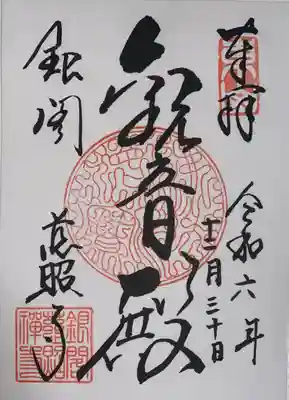 奉拝
令和六年
十二月三十日
観音殿
銀閣
慈照寺